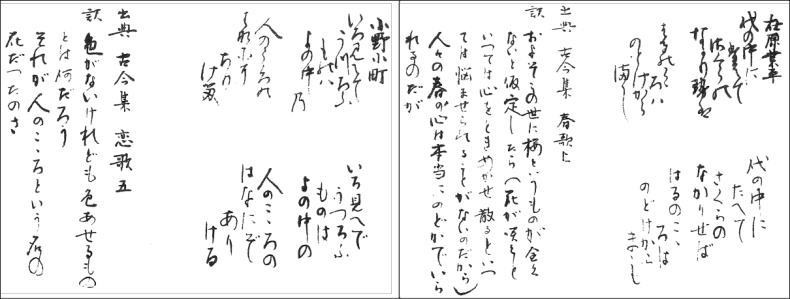 在原業平
代の中に
絶えて
さくらの
なかり世盤
はるのこゝ
ろは
のどけから
まし
代の中に
たへて
さくらの
なかり世ば
はるのこゝ
ろは
のどけから
ましも
出典 古今集 春歌上
訳 およそこの世に桜というものが全く
ないと仮定したら(花が咲くと
いっては心をときめかせ散るといっ
ては悩ませられることがないのだから)
人々の春の心は本当にのどかでいら
れるのだが
小野小町
いろ見えて
うつろふ
ものは
よの中乃
人のこゝろの
はなにぞ
あり
ける
いろ見へで
うつろふ
ものは
よの中の
人のこころの
はなにぞ
あり
ける
出典 古今集 恋歌五
訳 色がないけれども色あせるもの
とは何だろう
それが人のこころという名の
花だったのさ